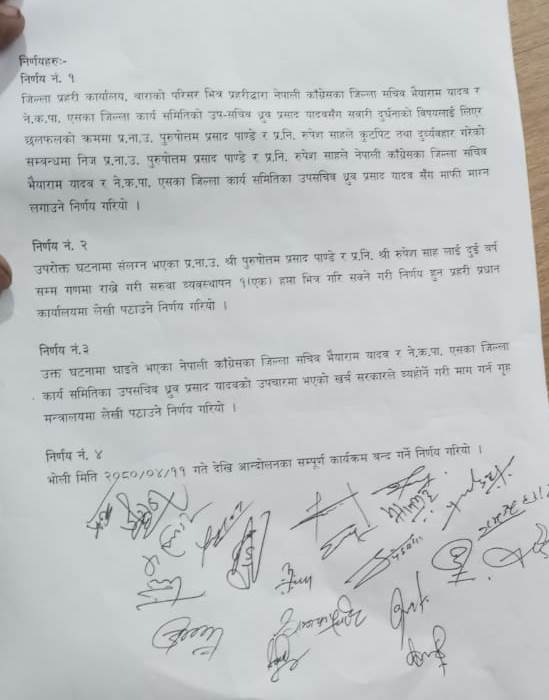 निर्णयहरु:-
निर्णय नं. १
जिल्ला प्रहरी कार्यालय, बाराको परिसर भित्र प्रहरीद्वारा नेपाली काँग्रेसका जिल्ला सचिव भैयाराम यादव र
ने.क.पा. एसका जिल्ला कार्य समितिको उप-सचिव ध्रुव प्रसाद यादवसँग सवारी दुर्घनाको विषयलाई लिएर
छलफलको क्रममा प्र.ना.उ. पुरुषोत्तम प्रसाद पाण्डे र प्र.नि. रुपेश साहले कुटपिट तथा दुर्व्यवहार गरेको
सम्बन्धमा निज प्र.ना.उ. पुरुषोत्तम प्रसाद पाण्डे र प्र.नि. रुपेश साहले नेपाली काँग्रेसका जिल्ला सचिव
भैयाराम यादव र ने.क.पा. एसका जिल्ला कार्य समितिका उपसचिव ध्रुव प्रसाद यादव सँग माफी माग्न
लगाउने निर्णय गरियो ।
निर्णय नं. २
उपरोक्त घटनामा संलग्न भएका प्र.ना.उ. श्री पुरुषोत्तम प्रसाद पाण्डे र प्र.नि. श्री रुपेश साह लाई दुई वर्ष
सम्म गणमा राख्ने गरी सरुवा व्यवस्थापन १(एक) हप्ता भित्र गरि सक्ने गरी निर्णय हुन प्रहरी प्रधान
कार्यालयमा लेखी पठाउने निर्णय गरियो ।
निर्णय नं.३
उक्त घटनामा घाइते भएका नेपाली काँग्रेसका जिल्ला सचिव भैयाराम यादव र ने.क.पा. एसका जिल्ला
कार्य समितिका उपसचिव ध्रुव प्रसाद यादवको उपचारमा भएको खर्च सरकारले व्यहोर्ने गरी माग गर्न गृह
मन्त्रालयमा लेखी पठाउने निर्णय गरियो ।
निर्णय नं. ४
भोली मिति २०८०/०४/११ गते देखि आन्दोलनका सम्पूर्ण कार्यक्रम बन्द गर्ने निर्णय गरियो ।